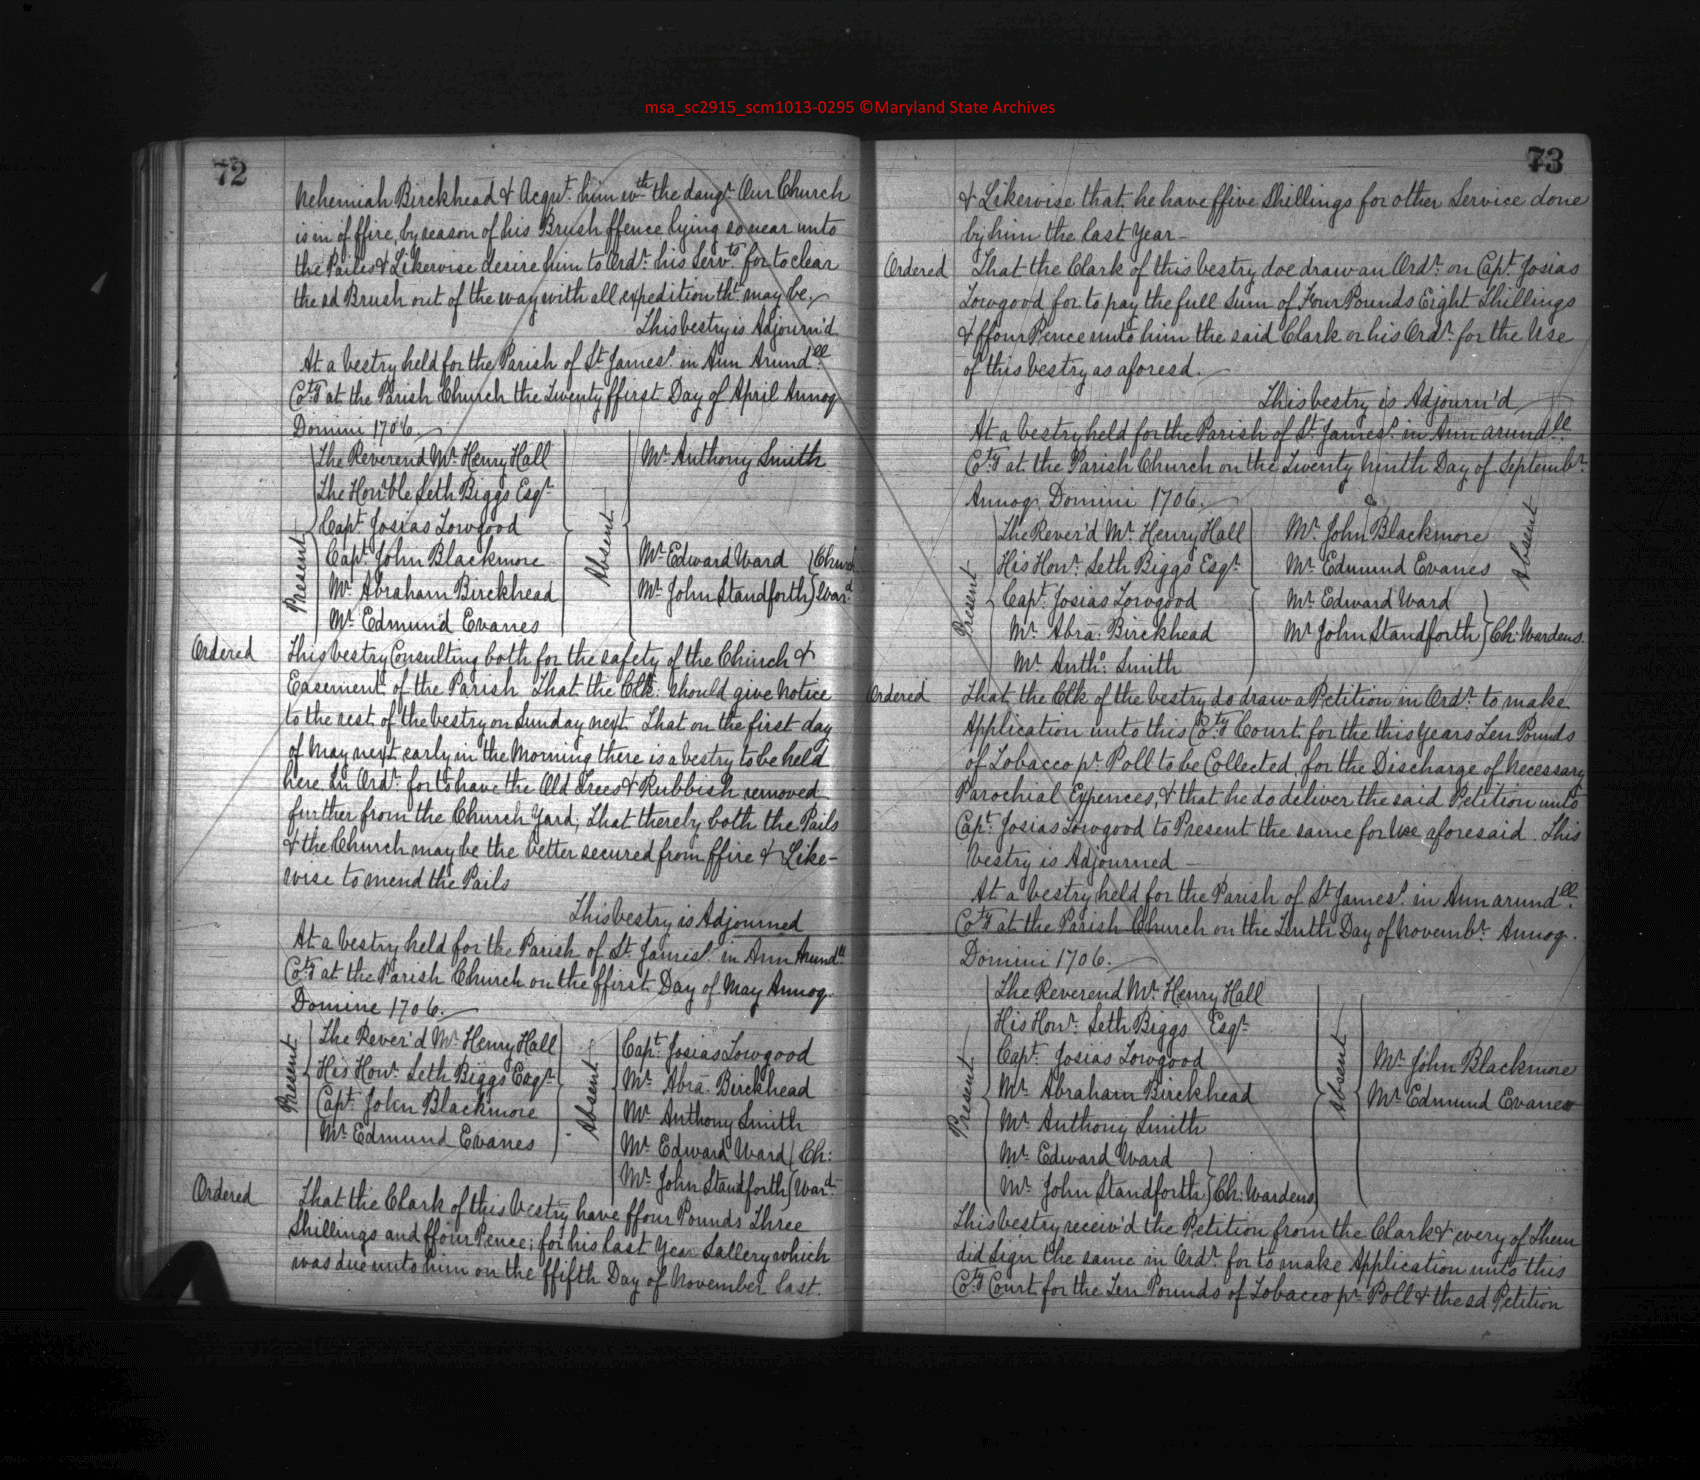 msa_sc2915_scm1013-0295 ©Maryland State Archives
72
Nehemiah Birckhead & Acqu.t him wth the dangr Our Church
is in of ffire, by reason of his Brush ffence lying so near unto
the Pailes & Likewise desire him to Ordr his Servts for to clear
the sd Brush out of the way with all expedition tht may be.
This vestry is Adjourn'd
At a vestry held for the Parish of St James's in Ann Arundll
Coty at the Parish Church the Twenty ffirst Day of April Annoq
Domini 1706.
Present
The Reverend Mr Henry Hall
The Honrble Seth Biggs Esqr
Capt Josias Towgood
Capt John Blackmore
Mr Abraham Birckhead
Mr Edmund Evanes
Absent
Mr Anthony Smith
Mr Edward Ward } Church
Mr John Standforth } Ward
Ordered
This vestry Consulting both for the safety of the Church &
Easement of the Parish That the Clk: should give Notice
to the rest of the vestry on Sunday next That on the first day
of May next early in the Morning there is a vestry to be held
here In Ordr for to have the Old Trees & Rubbish removed
further from the Church Yard; That thereby both the Pails
& the Church may be the better secured from ffire & Like-
wise to mend the Pails
This vestry is Adjourned
At a vestry held for the Parish of St James's in Ann Arundll
Coty at the Parish Church on the ffirst Day of May Annoq
Domine 1706.
Present
The Rever'd Mr Henry Hall
His Honr Seth Biggs Esqr
Capt John Blackmore
Mr Edmund Evanes
Absent
Capt Josias Towgood
Mr Abra. Birckhead
Mr Anthony Smith
Mr Edward Ward } Ch:
Mr John Standforth } Ward
Ordered
That the Clark of this Vestry have ffour Pounds Three
Shillings and ffour Pence; for his last Year Sallery which
was due unto him on the ffifth Day of November Last.
73
& Likewise that he have ffive Shillings for other Service done
by him the last Year -
Ordered
That the Clark of this vestry doe draw an Ordr on Capt Josias
Towgood for to pay the full Sum of Four Pounds Eight Shillings
& ffour Pence unto him the said Clark or his Ordr for the Use
of this vestry as aforesd.
This vestry is Adjourn'd
At a vestry held for the Parish of St James's in Ann arundll
Coty at the Parish Church on the Twenty ninth Day of Septembr
Annoq Domini 1706.
Present
The Rever'd Mr Henry Hall
His Honr Seth Biggs Esqr
Capt Josias Towgood
Mr Abra: Birckhead
Mr Antho Smith
Mr John Blackmore
Mr Edmund Evanes
Mr Edward Ward
Mr John Standforth } Ch: Wardens
Absent
Ordered
That the Clk of the vestry do draw a Petition in Ordr to make
Application unto this Coty Court for the this Years Ten Pounds
of Tobacco pr Poll to be Collected, for the Discharge of Necessary
Parochial Expences, & that he do deliver the said Petition unto
Capt Josias Towgood to Present the same for Use aforesaid. This
Vestry is Adjourned -
At a vestry held for the Parish of St James's in Ann arundll
Coty at the Parish Church on the Tenth Day of Novembr Annoq
Domini 1706.
Present
The Reverend Mr Henry Hall
His Honr Seth Biggs Esqr
Capt Josias Towgood
Mr Abraham Birckhead
Mr Anthony Smith
Mr Edward Ward
Mr John Standforth } Ch: Wardens
Absent
Mr John Blackmore
Mr Edmund Evanes
This vestry receiv'd the Petition from the Clark & every of Them
did Sign the same in Ordr for to make Application unto this
Coty Court for the Ten Pounds of Tobacco pr Poll & the sd Petition